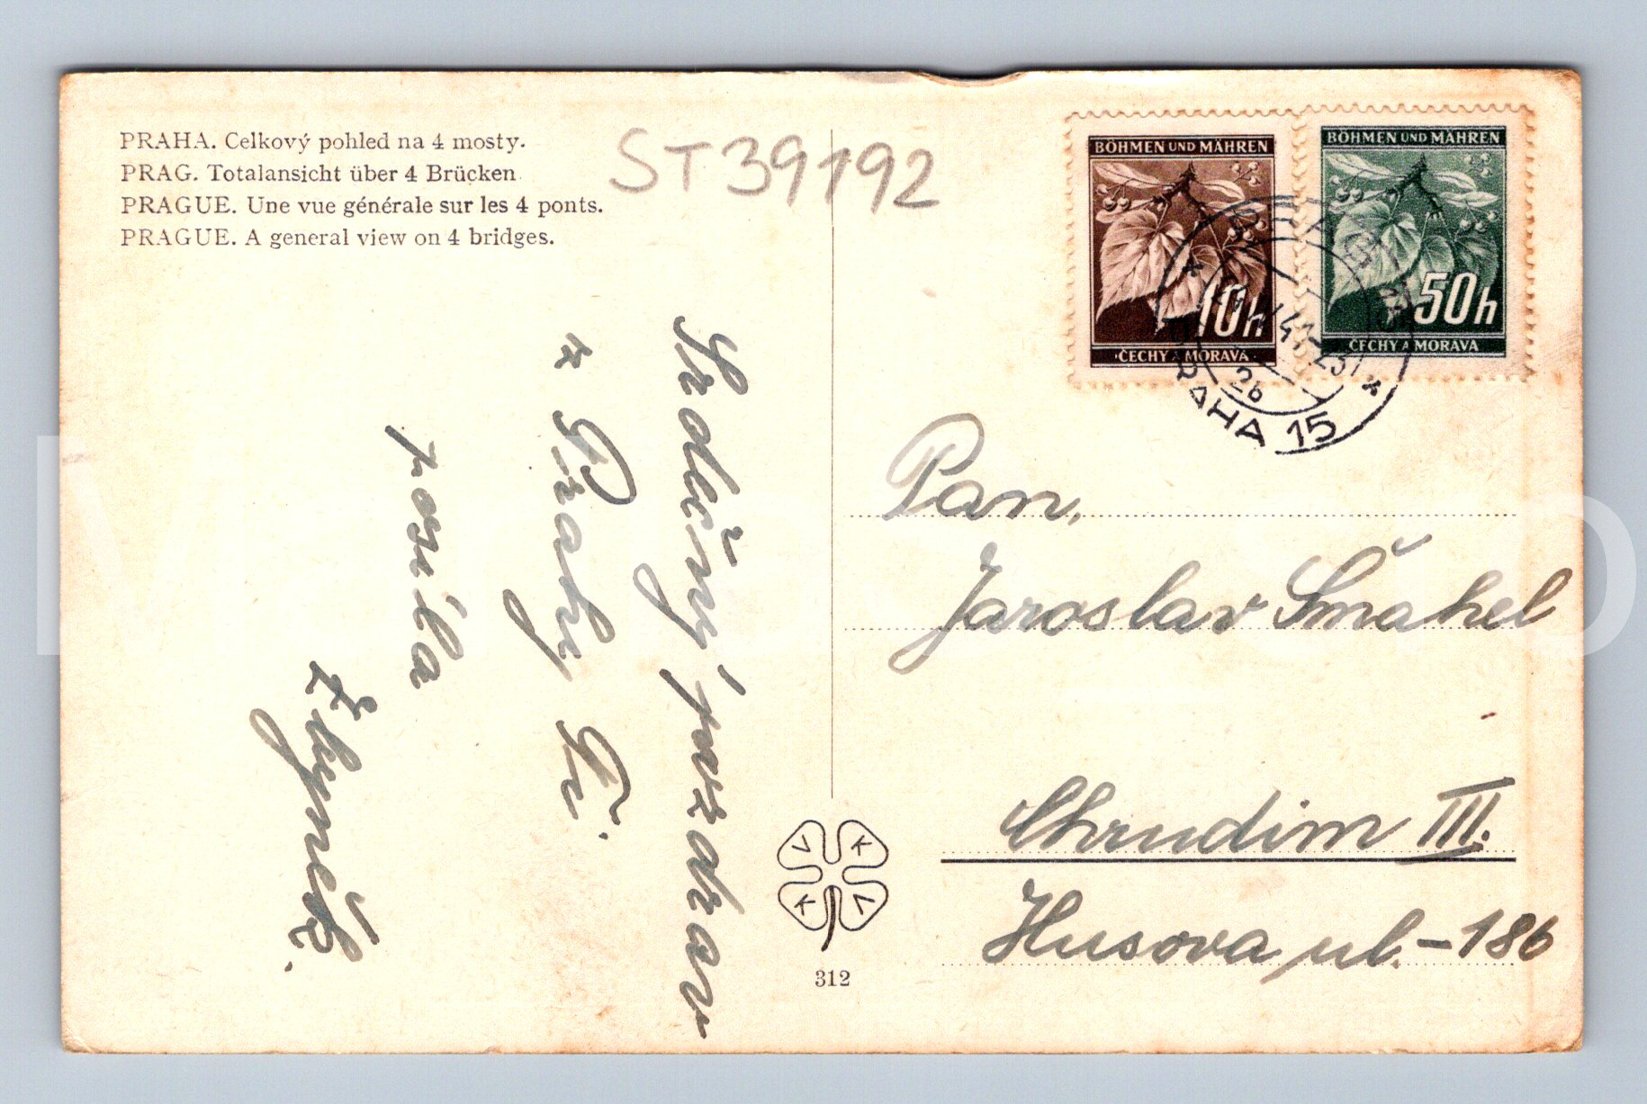 PRAHA. Celkový pohled na 4 mosty.
PRAG. Totalansicht über 4 Brücken
PRAGUE. Une vue générale sur les 4 ponts.
PRAGUE. A general view on 4 bridges.
ST39192
BÖHMEN UND MÄHREN
10h
ČECHY A MORAVA
BÖHMEN UND MÄHREN
50h
ČECHY A MORAVA
PRAG
2b
PRAHA 15
Srdečný pozdrav
z Prahy Ti
posílá
Zbyněk.
Pan,
Jaroslav Šmahel
Chrudim III.
Husova ul. - 186
V K
K V
312